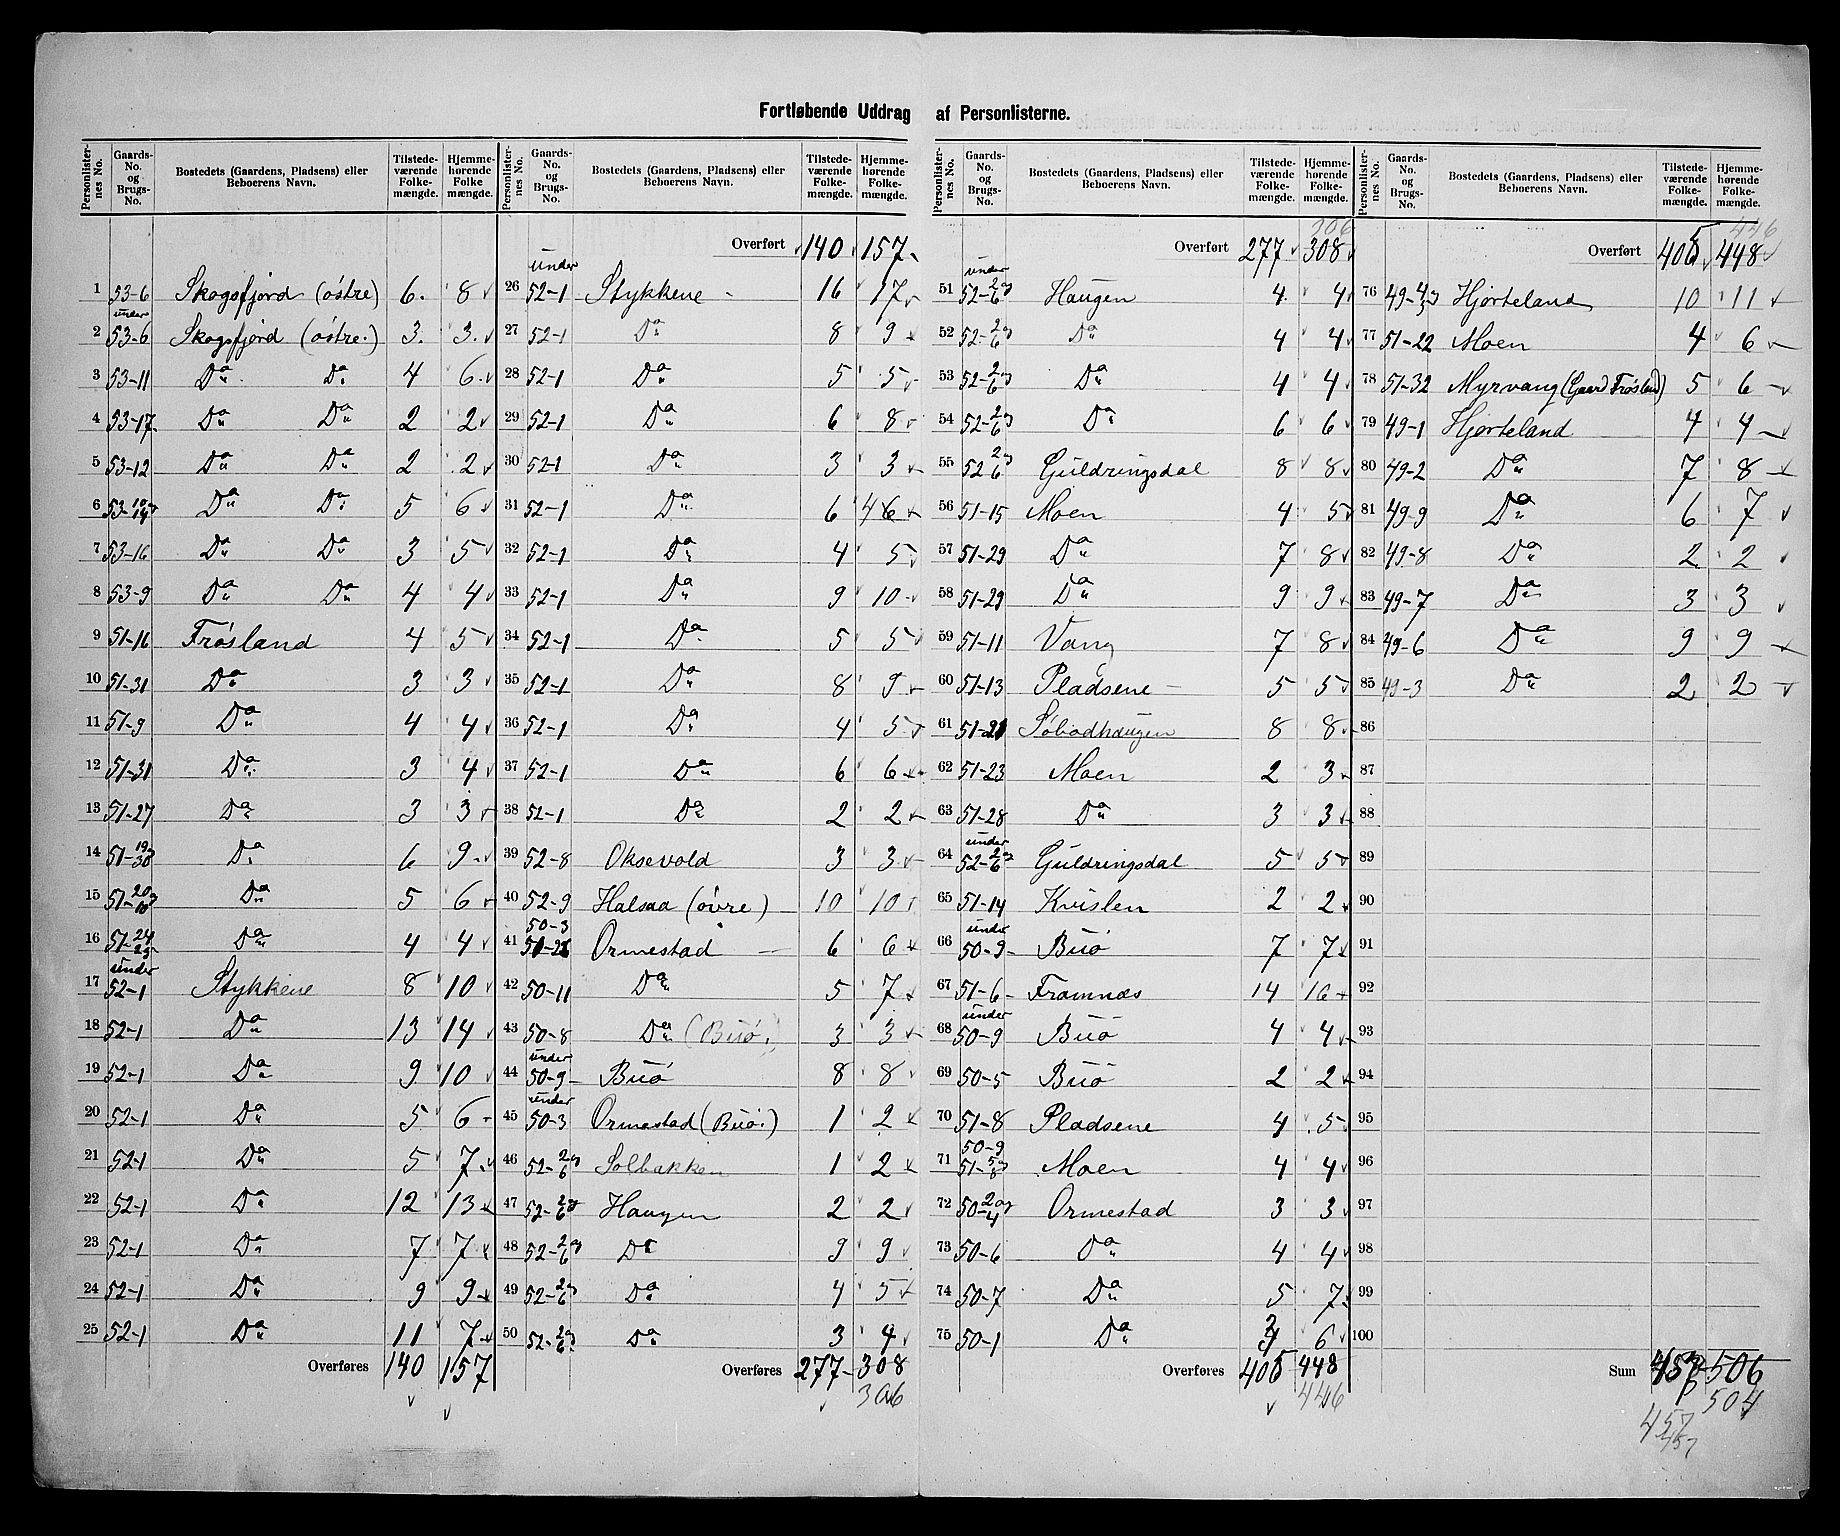 Fortløbende Uddrag af Personlisterne.
Personlister-nes No. | Gaards-No. og Brugs-No. | Bostedets (Gaardens, Pladsens) eller Beboerens Navn. | Tilstede-værende Folke-mængde. | Hjemme-hørende Folke-mængde.
1 53-6 Skogsfjord (østre) 6. 8
2 under 53-6 Skogsfjord (østre.) 3. 3.
3 53-11 Do Do 4 6
4 53-17 Do Do 2 2
5 53-12 Do Do 2 2
6 53- Do Do 5 6
7 53-16 Do Do 3 5
8 53-9 Do Do 4 4
9 51-16 Frøsland 4 5
10 51-31 Do 3 3
11 51-9 Do 4 4
12 51-31 Do 3 4
13 51-27 Do 3 3
14 51-19 og 30 Do 6 9
15 51-20 og 10 Do 5 6
16 51-24 25 Do 4 4
17 under 52-1 Stykkene 8 10
18 52-1 Do 13 14
19 52-1 Do 9 10
20 52-1 Do 5 6
21 52-1 Do 5 7
22 52-1 Do 12 13
23 52-1 Do 7 7
24 52-1 Do 9 9
25 52-1 Do 11 7
Overføres 140 157
Personlister-nes No. | Gaards-No. og Brugs-No. | Bostedets (Gaardens, Pladsens) eller Beboerens Navn. | Tilstede-værende Folke-mængde. | Hjemme-hørende Folke-mængde.
Overført 140 157
26 under 52-1 Stykkene 16 17
27 52-1 Do 8 9
28 52-1 Do 5 5
29 52-1 Do 6 8
30 52-1 Do 3 3
31 52-1 Do 6 6
32 52-1 Do 4 5
33 52-1 Do 9 10
34 52-1 Do 5 5
35 52-1 Do 8 9
36 52-1 Do 4 5
37 52-1 Do 6 6
38 52-1 Do 2 2
39 52-8 Oksevold 3 3
40 52-9 Halsaa (øvre) 10 10
41 50-3 Ormestad 6 6
42 50-11 Do 5 7
43 50-8 Do (Buø) 3 3
44 under 50-9 Buø 8 8
45 under 50-3 Ormestad (Buø) 1 2
46 52-2 og 6 Solbakken 1 2
47 52-2 og 6 Haugen 2 2
48 52-2 og 6 Do 9 9
49 52-2 og 6 Do 4 5
50 52-2 og 6 Do 3 4
Overføres 277 308
306
Personlister-nes No. | Gaards-No. og Brugs-No. | Bostedets (Gaardens, Pladsens) eller Beboerens Navn. | Tilstede-værende Folke-mængde. | Hjemme-hørende Folke-mængde.
306
Overført 277 308
51 under 52-2 og 6 Haugen 4 4
52 52-2 og 6 Do 4 4
53 52-2 og 6 Do 4 4
54 52-2 og 6 Do 6 6
55 52 2 og 6 Guldringsdal 8 8
56 51-15 Moen 4 5
57 51-29 Do 7 8
58 51-29 Do 9 9
59 51-11 Vang 7 8
60 51-13 Pladsene 5 5
61 51-21 Søbodhaugen 8 8
62 51-23 Moen 2 3
63 51-28 Do 3 3
64 under 52-2 og 6 Guldringsdal 5 5
65 51-14 Kvislen 2 2
66 under 50-9 Buø 7 7
67 51-6 Framnæs 14 16
68 under 50-9 Buø 4 4
69 50-5 Buø 2 2
70 51-8 Pladsene 4 5
71 50-9 51-5 og 8 Moen 4 4
72 50-2 og 4 Ormestad 3 3
73 50-6 Do 4 4
74 50-7 Do 5 7
75 50-1 Do 6
Overføres 405 448
446
Personlister-nes No. | Gaards-No. og Brugs-No. | Bostedets (Gaardens, Pladsens) eller Beboerens Navn. | Tilstede-værende Folke-mængde. | Hjemme-hørende Folke-mængde.
446
Overført 405 448
76 49-4 og 3 Hjorteland 10 11
77 51-22 Moen 4 6
78 51-32 Myrvang (Gaard Frøsland) 5 6
79 49-1 Hjorteland 4 4
80 49-2 Do 7 8
81 49-9 Do 6 7
82 49-8 Do 2 2
83 49-7 Do 3 3
84 49-6 Do 9 9
85 49-3 Do 2 2
86
87
88
89
90
91
92
93
94
95
96
97
98
99
100
Sum 457 506
504
457
457